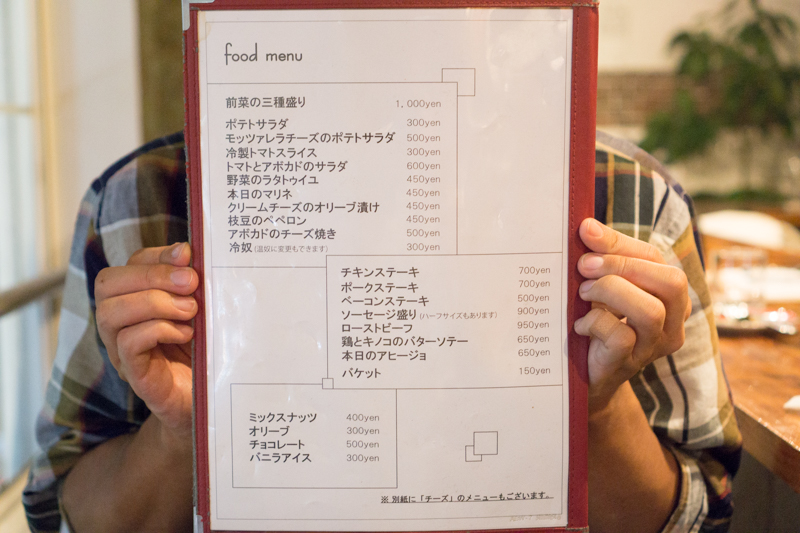 food menu
前菜の三種盛り 1,000yen
ポテトサラダ 300yen
モッツァレラチーズのポテトサラダ 500yen
冷製トマトスライス 300yen
トマトとアボカドのサラダ 600yen
野菜のラタトゥイユ 450yen
本日のマリネ 450yen
クリームチーズのオリーブ漬け 450yen
枝豆のペペロン 450yen
アボカドのチーズ焼き 500yen
冷奴(温奴に変更もできます) 300yen
チキンステーキ 700yen
ポークステーキ 700yen
ベーコンステーキ 500yen
ソーセージ盛り(ハーフサイズもあります) 900yen
ローストビーフ 950yen
鶏とキノコのバターソテー 650yen
本日のアヒージョ 650yen
バケット 150yen
ミックスナッツ 400yen
オリーブ 300yen
チョコレート 500yen
バニラアイス 300yen
※ 別紙に「チーズ」のメニューもございます。